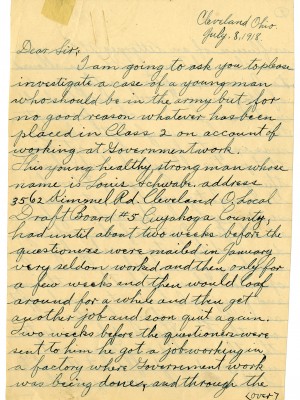 Cleveland Ohio
July. 8, 1918.
Dear Sir;
I am going to ask you to please
investigate a case of a young man
who should be in the army but for
no good reason whatever has been
placed in Class 2 on account of
working at Government work.
This young healthy strong man whose
name is Louis Schwabe address
3562 Kimmel Rd. Cleveland O. Local
Draft Board #5 Cuyahoga County,
had until about two weeks before the
questioners were mailed in January
very seldom worked and then only for
a few weeks and then would loaf
around for a while and then get
another job and soon quit again.
Two weeks before the questioners were
sent to him he got a job working in
a factory where Government work
was being done, and through the
(over)